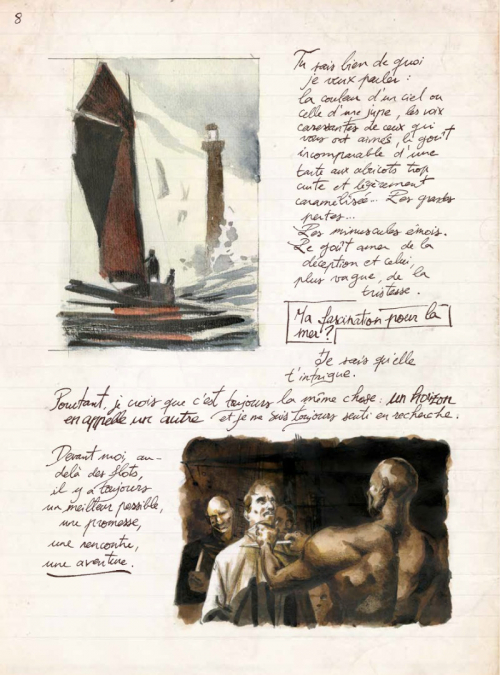 8
Tu sais bien de quoi
je veux parler :
la couleur d'un ciel ou
celle d'une jupe, les voix
caressantes de ceux qui
vous ont aimés, le goût
incomparable d'une
tarte aux abricots trop
cuite et légèrement
caramélisée... Les grandes
pertes...
Les minuscules émois.
Le goût amer de la
déception et celui,
plus vague, de la
tristesse.
Ma fascination pour la
mer ?
Je sais qu'elle
t'intrigue.
Pourtant, je crois que c'est toujours la même chose : un horizon
en appelle un autre et je me suis toujours senti en recherche.
Devant moi, au-
delà des flots,
il y a toujours
un meilleur possible,
une promesse,
une rencontre,
une aventure.